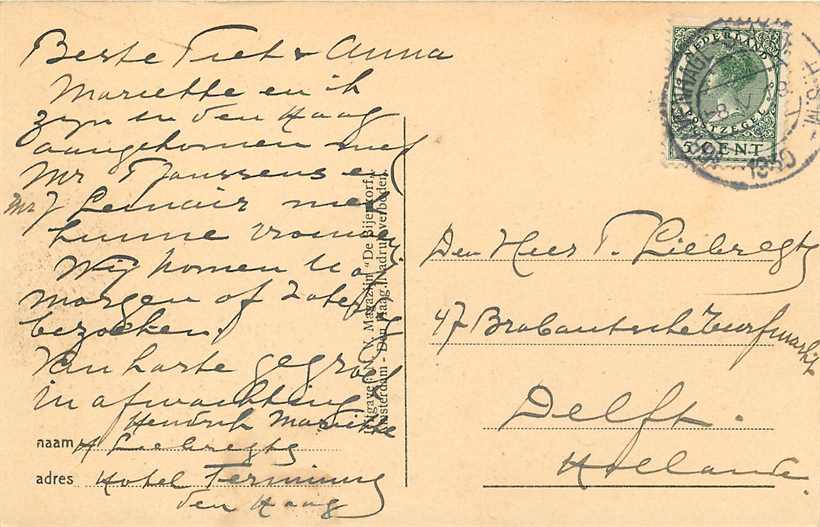 Beste Piet & Anna
Mariette en ik
zijn in den Haag
aangekomen met
Mr T Janssens en
Mr J Lemair met
hunne vrouwen
Wij komen U
morgen of Zaterdag
bezoeken.
Van harte gegroet
in afwachting
Hendrik Mariette
naam H Liebregts
adres Hotel Terminus
den Haag
Uitgave v. N.V. Magazijn "De Bijenkorf",
Amsterdam - Den Haag. Nadruk verboden.
NEDERLAND
POSTZEGEL
5 CENT
1935
H.S.M.
Den Heer P. Liebregts
47 Brabantsche Turfmarkt
Delft.
Holland.